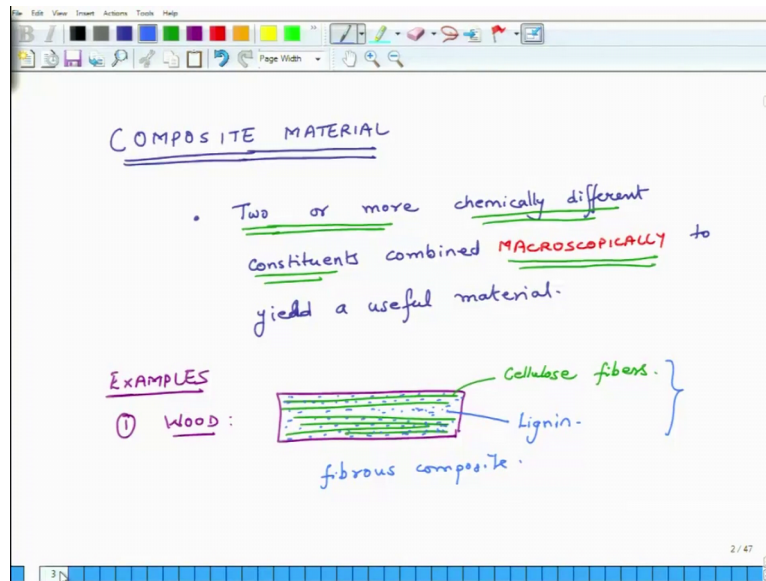 File Edit View Insert Actions Tools Help
B I
Page Width
COMPOSITE MATERIAL
• Two or more chemically different
constituents combined MACROSCOPICALLY to
yield a useful material.
EXAMPLES
① WOOD :
Cellulose fibers.
Lignin.
fibrous composite.
2 / 47
3